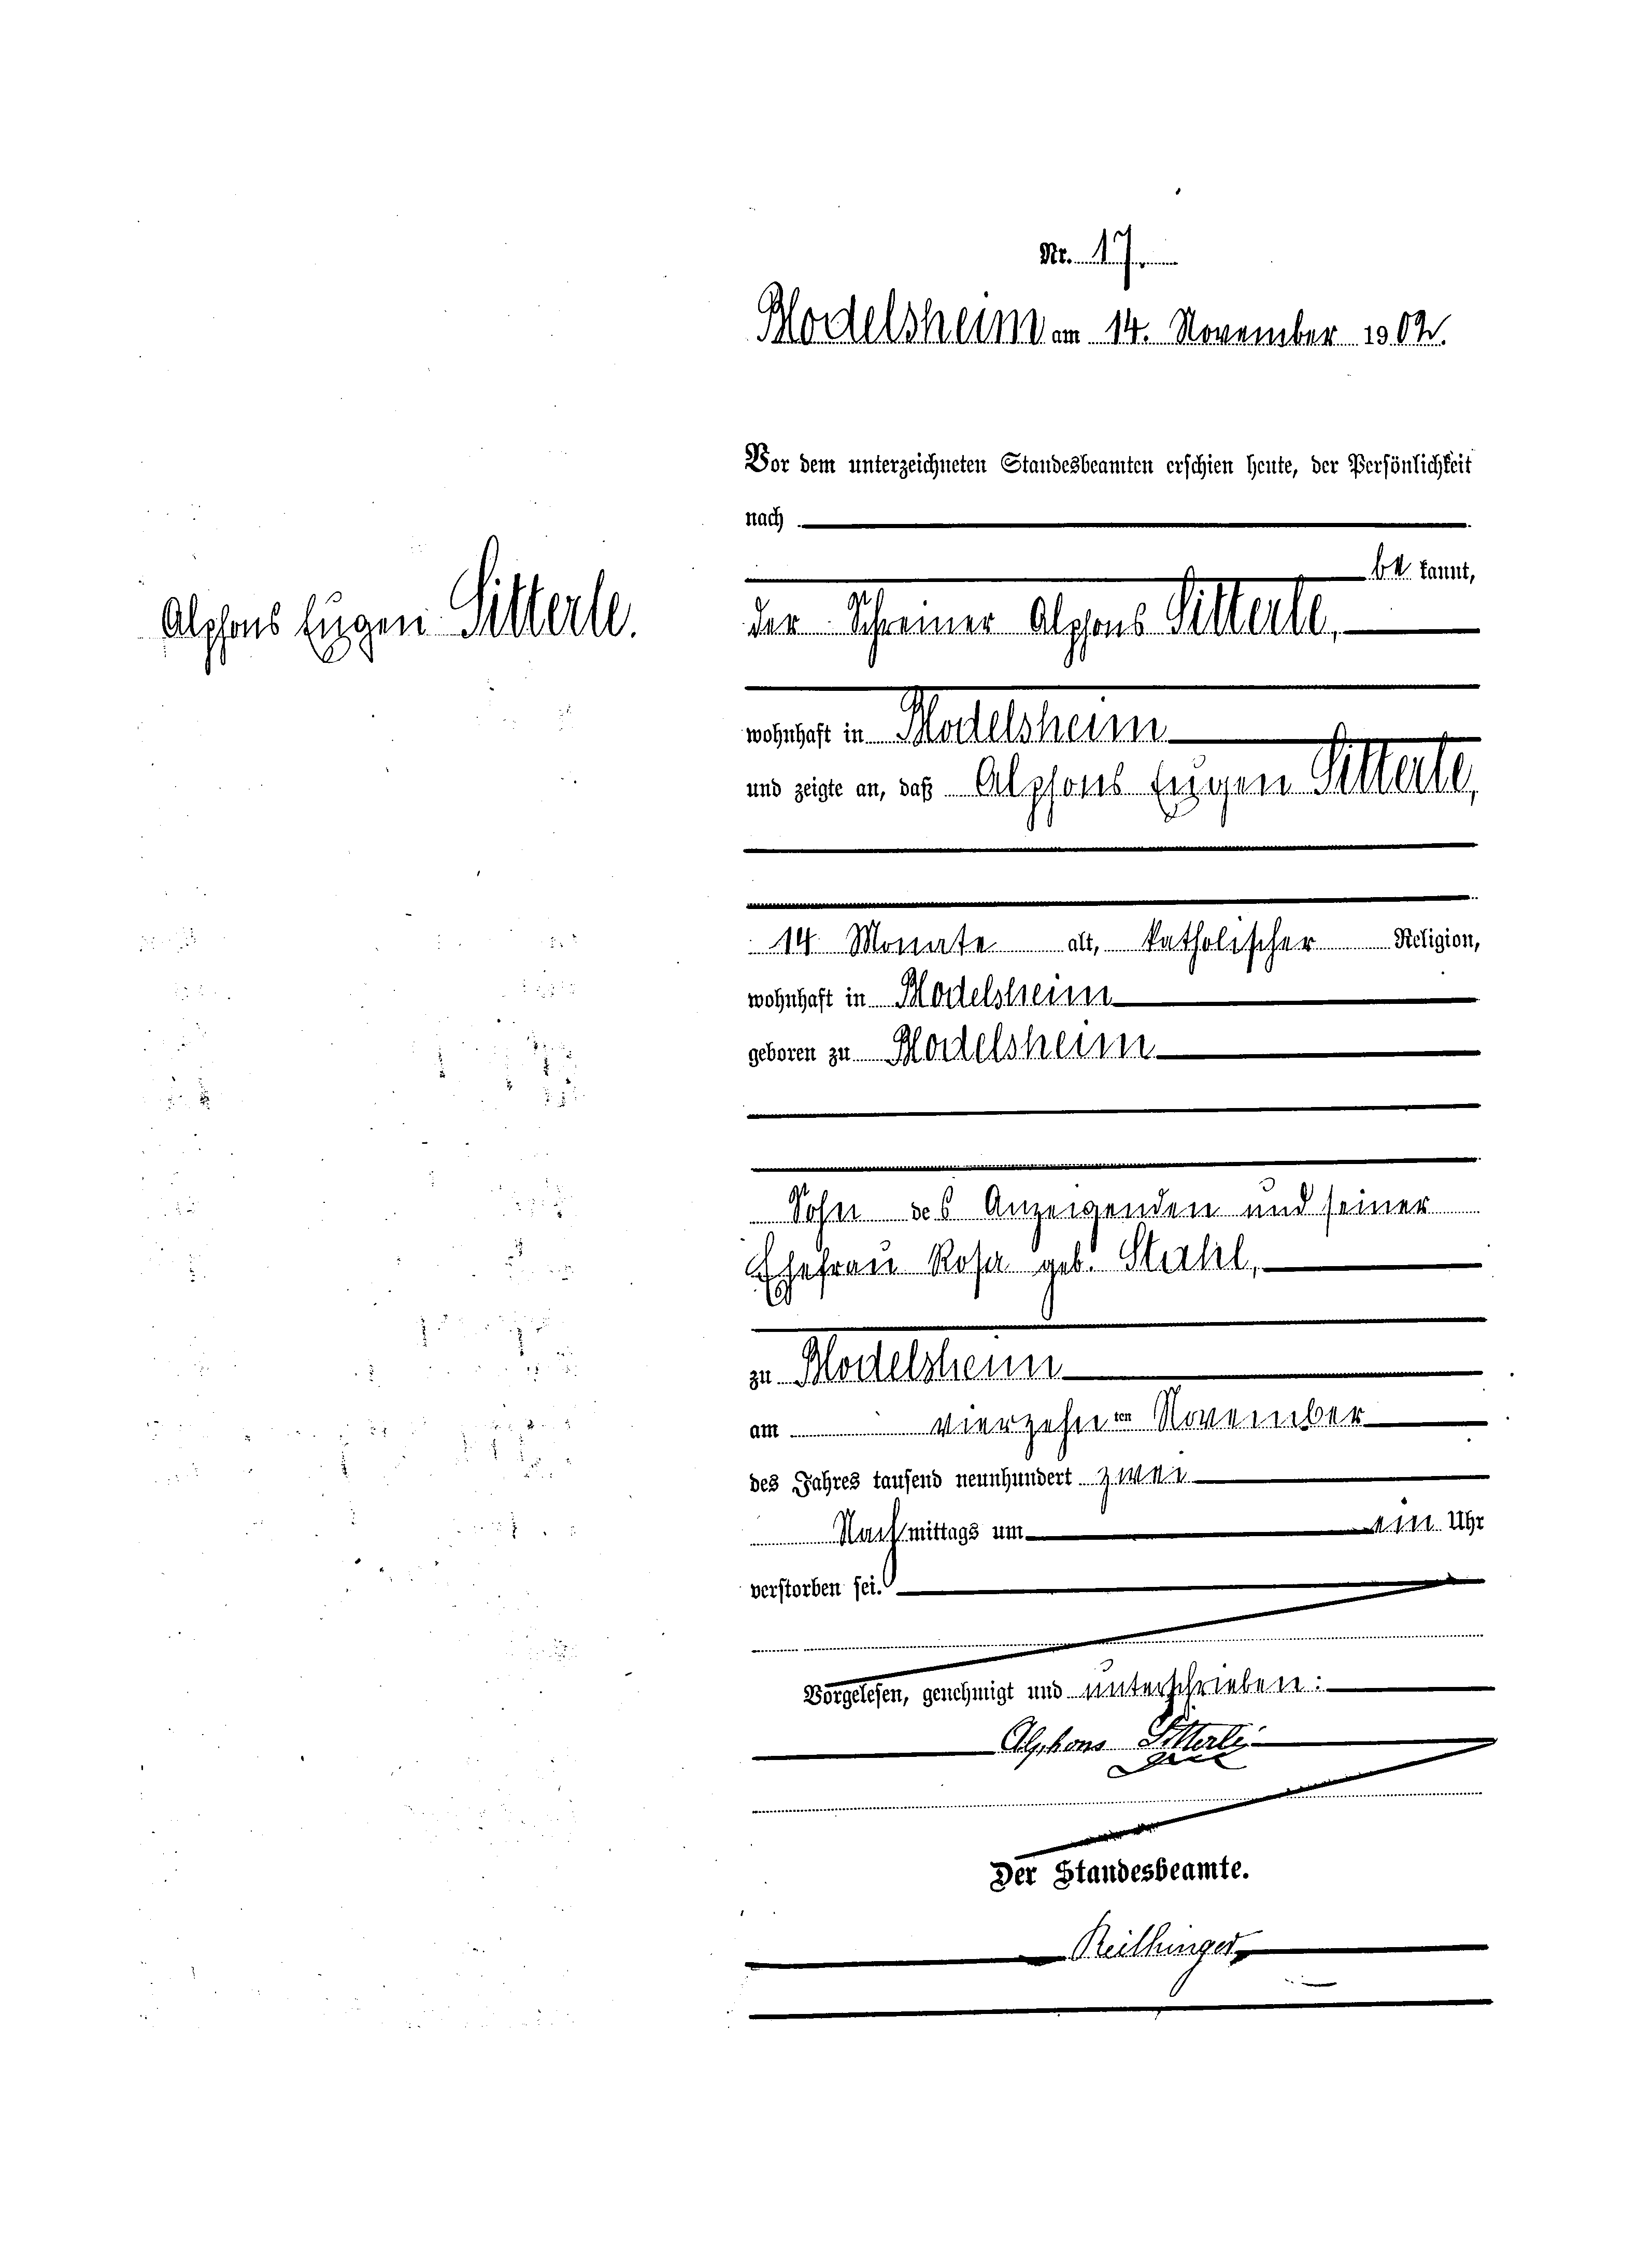 Nr. 17.
Blodelsheim am 14. November 1902.
Vor dem unterzeichneten Standesbeamten erschien heute, der Persönlichkeit
nach
be kannt,
Alphons Eugen Sitterle.
der Schreiner Alphons Sitterle,
wohnhaft in Blodelsheim
und zeigte an, daß Alphons Eugen Sitterle,
14 Monate alt, katholischer Religion,
wohnhaft in Blodelsheim
geboren zu Blodelsheim
Sohn des Anzeigenden und seiner
Ehefrau Rosa geb. Stahl,
zu Blodelsheim
am vierzehnten November
des Jahres tausend neunhundert zwei
Nachmittags um ein Uhr
verstorben sei.
Vorgelesen, genehmigt und unterschrieben:
Alphons Sitterle
Der Standesbeamte.